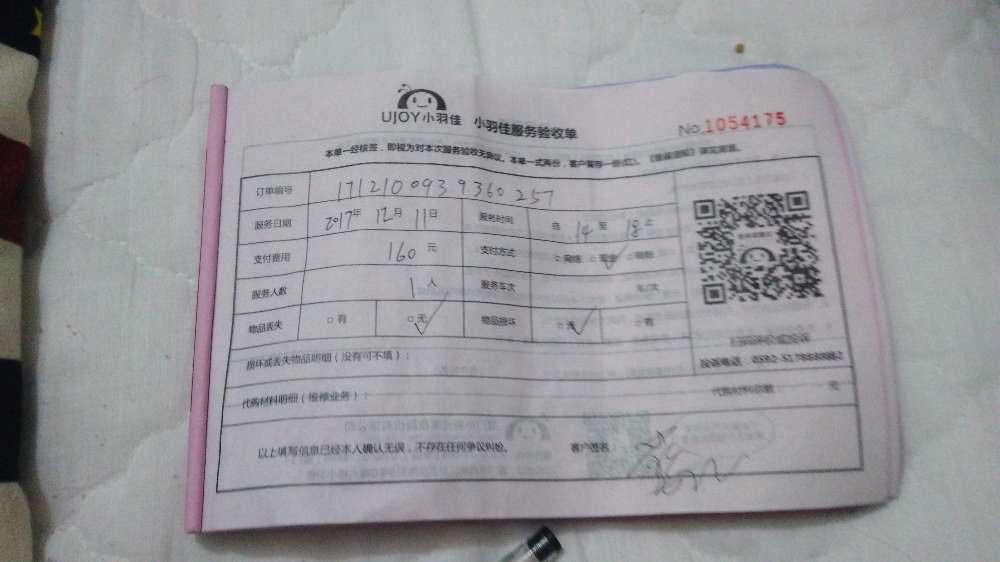 UJOY小羽佳 小羽佳服务验收单 No.1054175
本单一经核签，即视为对本次服务验收无异议。本单一式两份，客户留存一份(红)。
订单编号 1712100939360257
服务日期 2017年 12月 11日 服务时间 自 14 至 18止
支付费用 160 元 支付方式 □网络 □现金✓
服务人数 1人 服务车次 车/次
物品丢失 □有 □无✓ 物品损坏 □无✓ □有
扫码评价或投诉
损坏或丢失物品明细（没有可不填）：
投诉电话：0592-5178888转2
代购材料明细（维修业务）： 代购材料总额： 元
以上填写信息已经本人确认无误，不存在任何争议纠纷。 客户签名